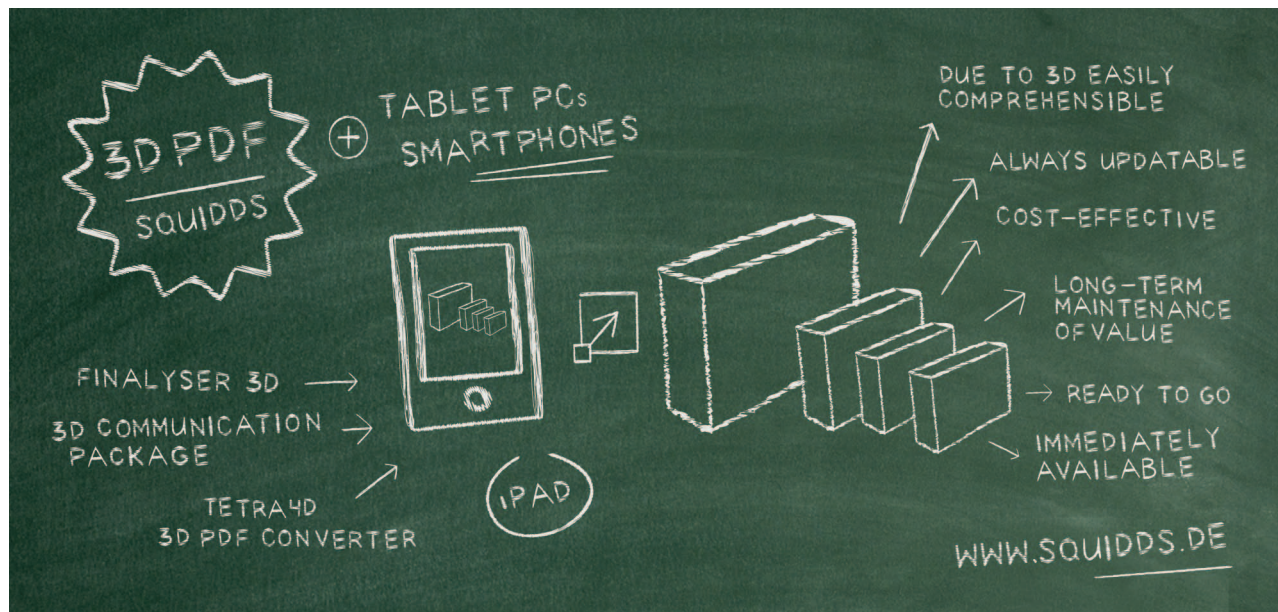 3D PDF
SQUIDDS
TABLET PCs
SMARTPHONES
FINALYSER 3D
3D COMMUNICATION
PACKAGE
TETRA4D
3D PDF CONVERTER
iPAD
DUE TO 3D EASILY
COMPREHENSIBLE
ALWAYS UPDATABLE
COST-EFFECTIVE
LONG-TERM
MAINTENANCE
OF VALUE
READY TO GO
IMMEDIATELY
AVAILABLE
WWW.SQUIDDS.DE